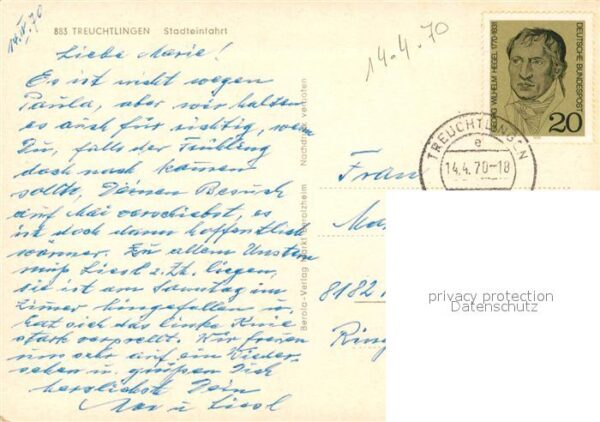 883 TREUCHTLINGEN Stadteinfahrt
14.4.70
14.4.70
Liebe Marie!
Es ist nicht wegen
Paula, aber wir halten
es auch für richtig, wenn
Du, falls der Frühling
doch noch kommen
sollte, Deinen Besuch
auf Mai verschiebst, es
ist doch dann hoffentlich
wärmer. Zu allem
muß Liesl z. Zt. liegen,
sie ist am Sonntag im
Zimer hingefallen u.
hat sich das linke Knie
stark verprellt. Wir freuen
uns sehr auf ein Wieder-
sehen u. grüßen Dich
herzlichst Dein
Max u Liesl
Berola-Verlag Markt Berolzheim Nachdruck verboten
GEORG WILHELM HEGEL 1770-1831
DEUTSCHE BUNDESPOST
20
TREUCHTLINGEN
e
14.4.70-18
Frau
8182
privacy protection
Datenschutz